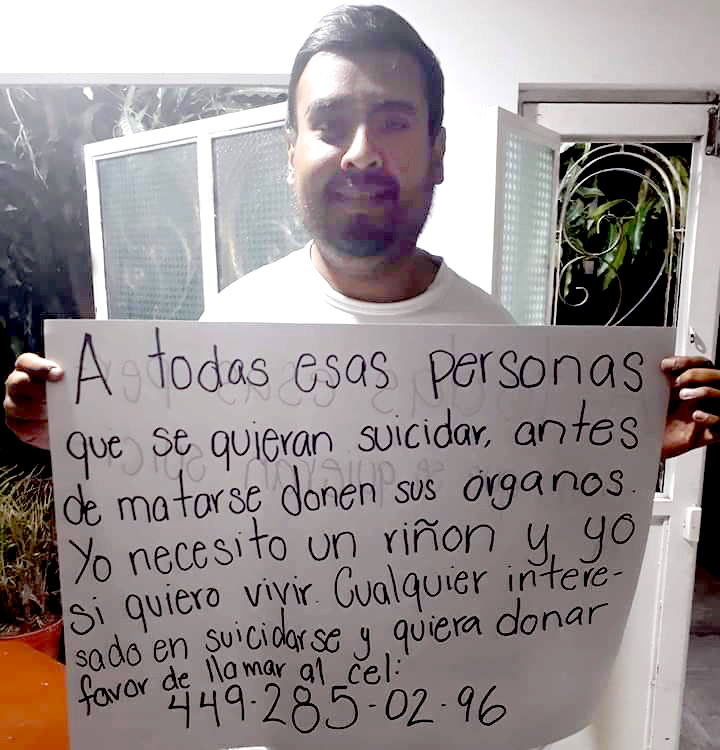 A todas esas personas
que se quieran suicidar, antes
de matarse donen sus órganos.
Yo necesito un riñon y yo
si quiero vivir. Cualquier intere-
sado en suicidarse y quiera donar
favor de llamar al cel:
449-285-02-96